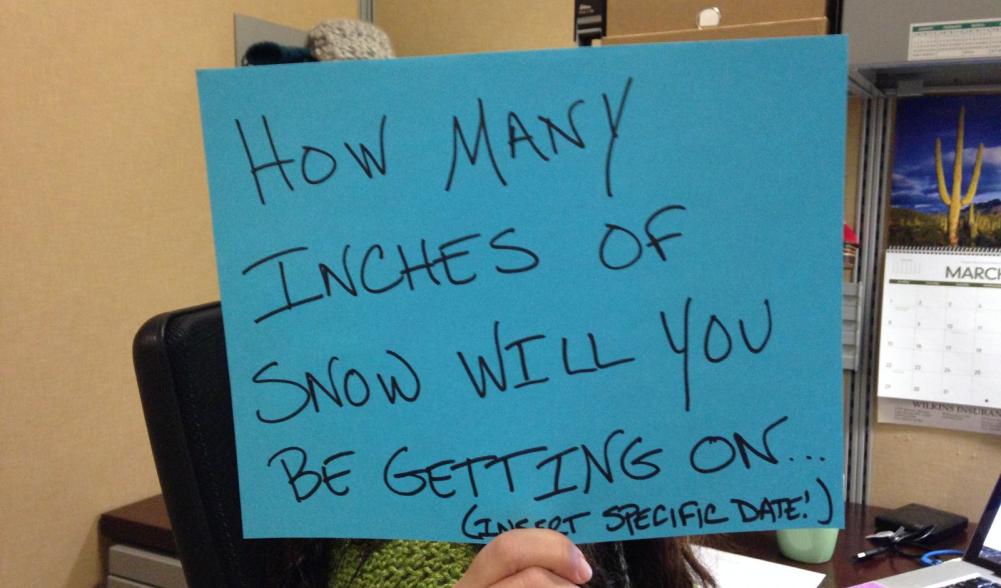 HOW MANY
INCHES OF
SNOW WILL YOU
BE GETTING ON...
(INSERT SPECIFIC DATE!)
MARCH
WILKINS INSURAN